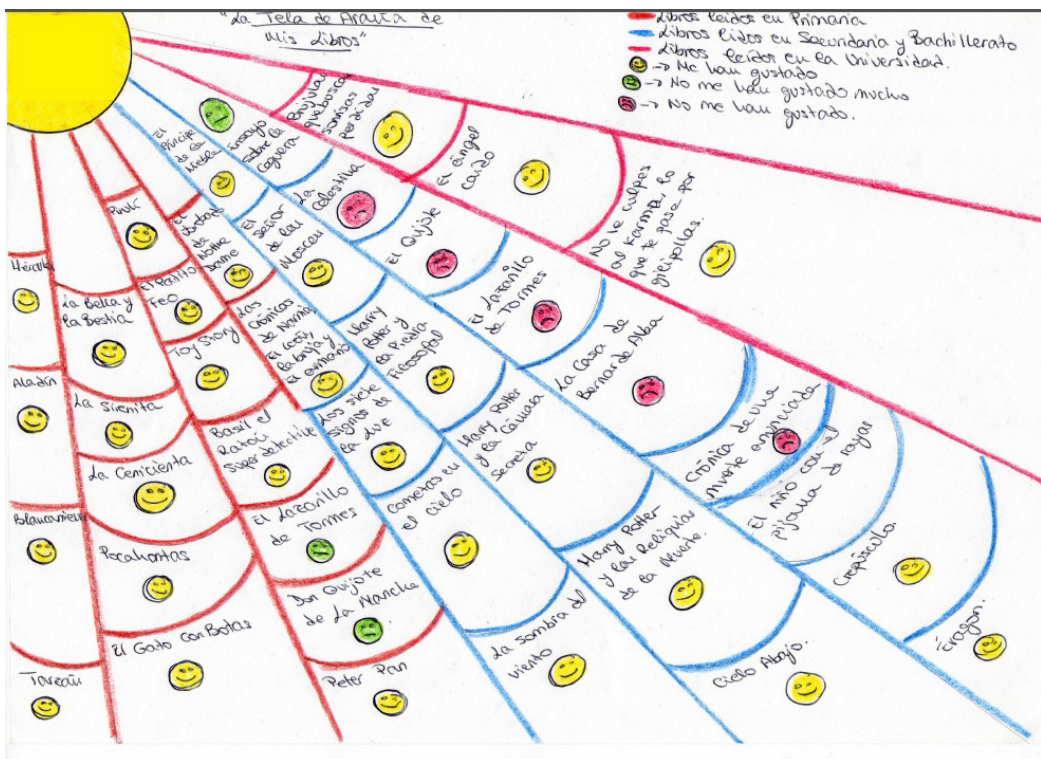 "La Tela de Araña de
Mis Libros"
Libros leídos en Primaria
Libros leídos en Secundaria y Bachillerato
Libros leídos en la Universidad.
-> Me han gustado
-> No me han gustado mucho
-> No me han gustado.
Hércules
Aladín
Blancanieves
Tarzán
La Bella y
la Bestia
La Sirenita
La Cenicienta
Pocahontas
El Gato con Botas
El Patito
Feo
Toy Story
Basil el
Ratón
Superdetective
El Lazarillo
de Tormes
Don Quijote
de La Mancha
Peter Pan
El
Jorobado
de
Notre
Dame
Las
Crónicas
de Narnia,
El León,
la bruja y
El armario
El
Príncipe
de la
Niebla
El
Señor
de las
Moscas
Los siete
signos de
la luz
Cometas en
el cielo
La Sombra del
Viento
Ensayo
sobre la
Ceguera
La
Celestina
Harry
Potter y
la Piedra
Filosofal
Harry Potter
y la Cámara
Secreta
Harry Potter
y las Reliquias
de la Muerte.
Cielo Abajo.
El Quijote
El Lazarillo
de Tormes
La Casa de
Bernarda Alba
Crónica de una
muerte anunciada
El niño con el
pijama de rayas
Crepúsculo.
Eragon.
Brújulas
que buscan
sonrisas
perdidas
El ángel
Caído
No le culpes
al karma, lo
que te pase por
gilipollas.